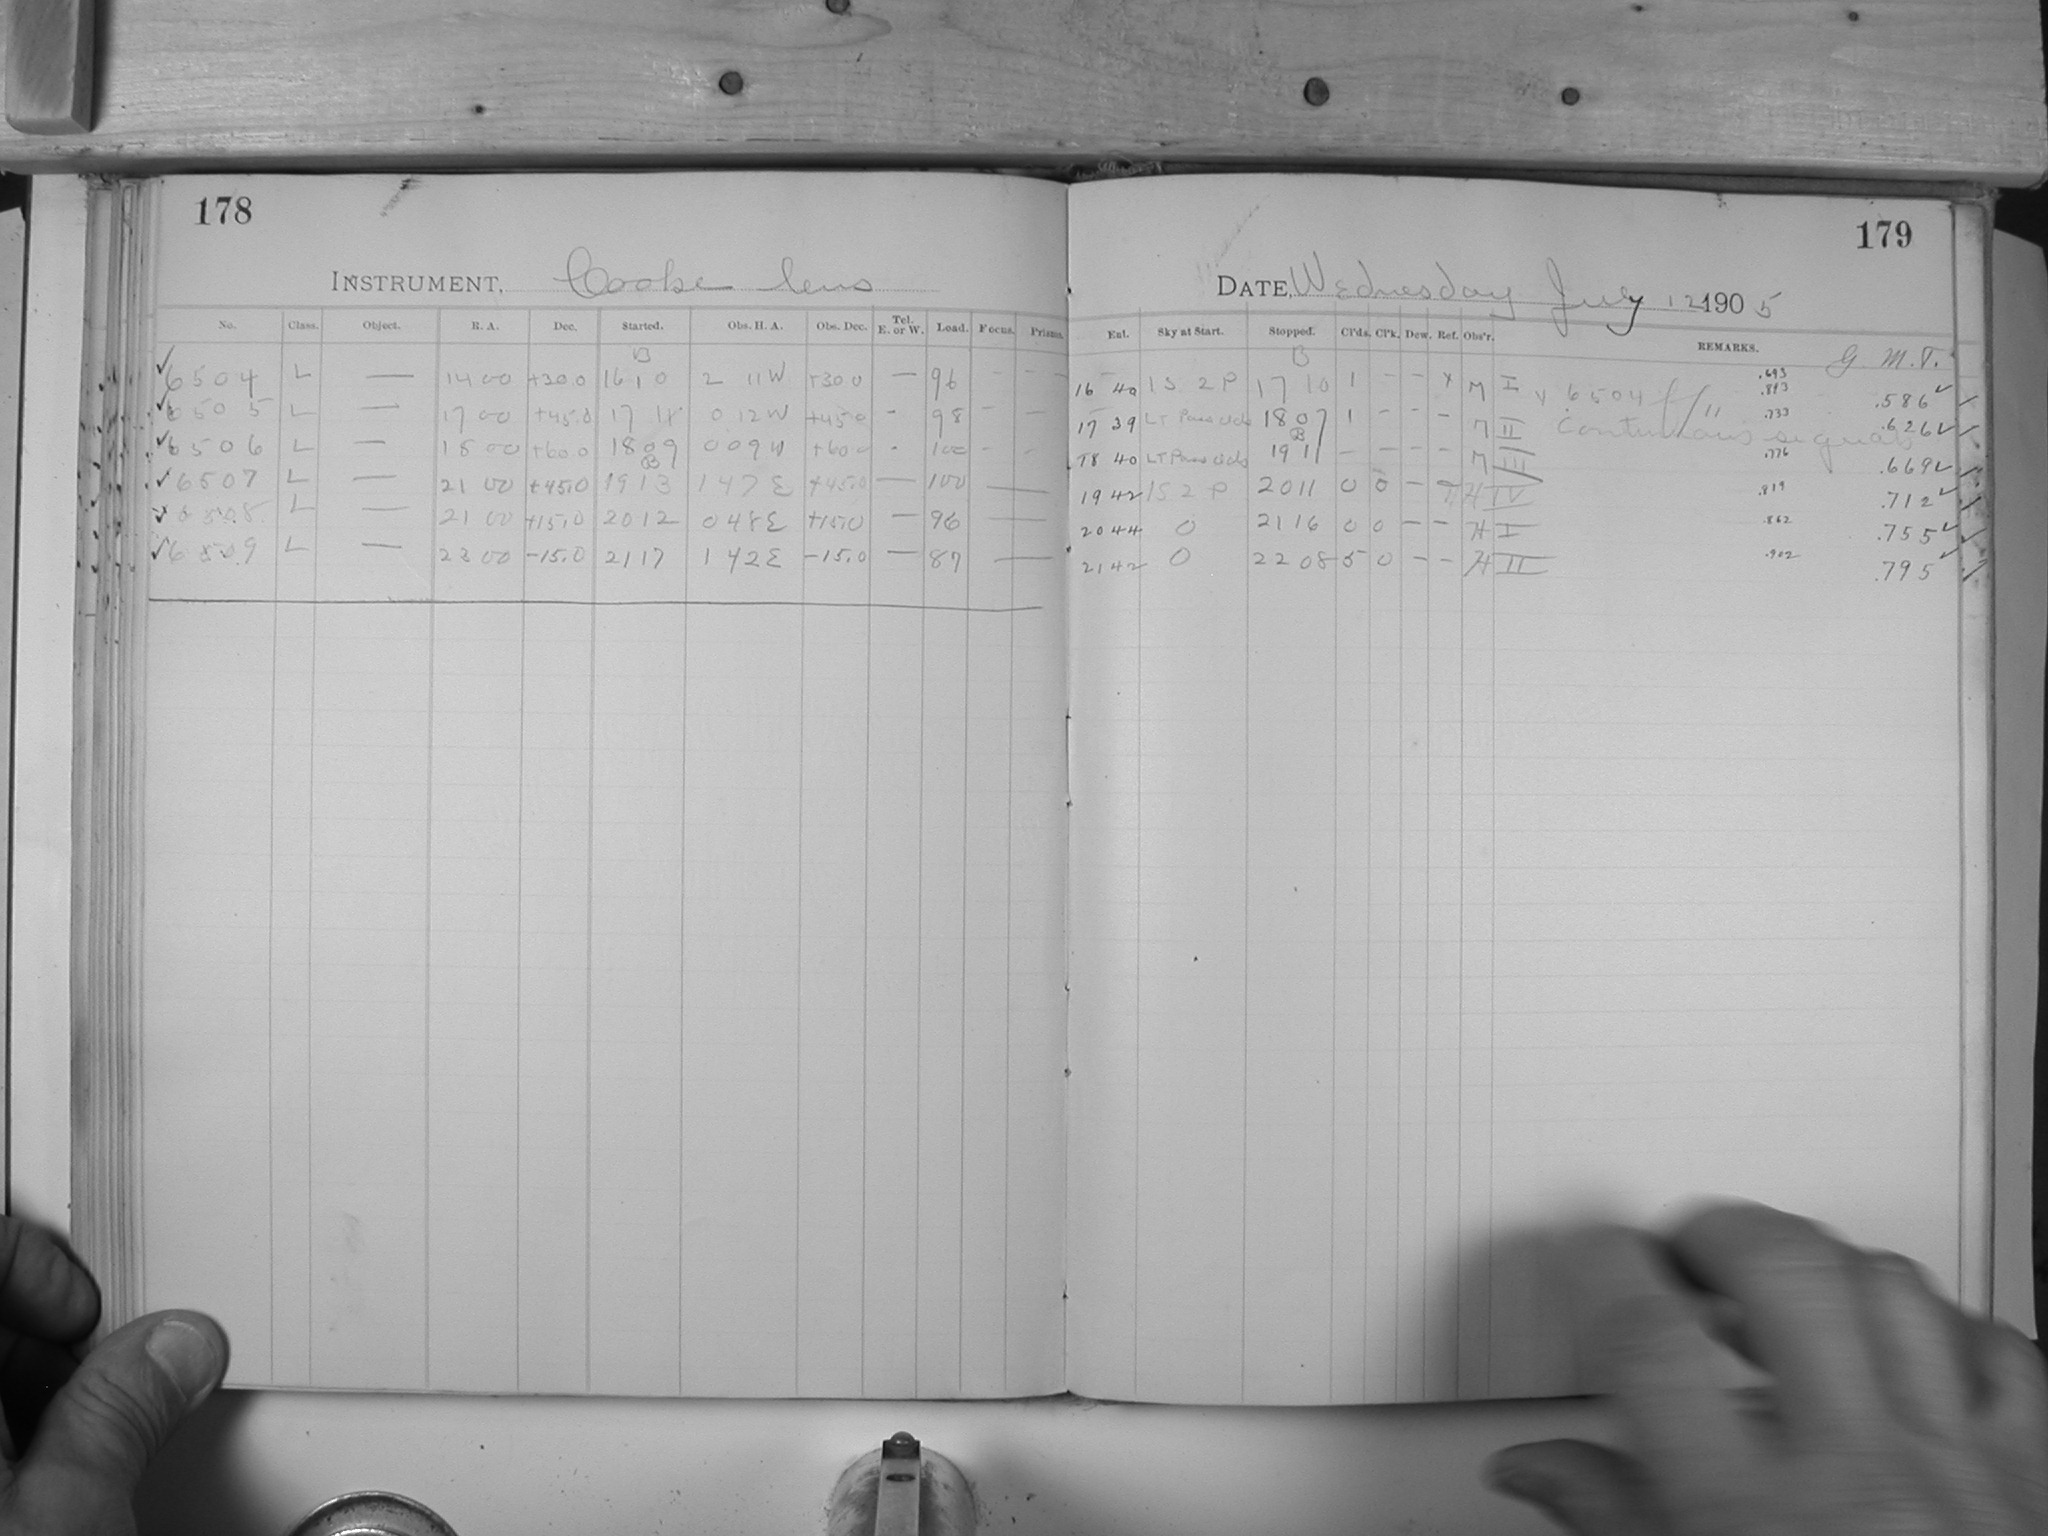 178
INSTRUMENT, Cooke lens
No. Class. Object. R. A. Dec. Started. Obs. H. A. Obs. Dec. Tel. E. or W. Load. Focus. Prisms.
B
6504 L — 14 00 +30.0 16 10 2 11 W +30.0 — 96 - - -
6505 L — 17 00 +45.0 17 11 0 12 W +45.0 - 98 - -
6506 L — 18 00 +60.0 18 09 0 09 W +60.0 - 100 - -
B
6507 L — 21 00 +45.0 19 13 1 47 E +45.0 — 100 —
6508 L 21 00 +15.0 20 12 0 48 E +15.0 — 96 —
6509 L — 23 00 -15.0 21 17 1 42 E -15.0 — 87 —
179
DATE, Wednesday July 12 1905
Ent. Sky at Start. Stopped. Cl'ds. Cl'k. Dew. Ref. Obs'r. REMARKS. G. M. T.
B
16 40 1S 2P 17 10 1 - - x M I x 6504 .693 .893 .586
17 39 LT Pass clds 18 07 1 - - - M II Continuous signals .733 .626
B
18 40 LT Pass clds 19 11 - - - - M III .776 .669
19 42 1S 2P 20 11 0 0 - - H IV .819 .712
20 44 0 21 16 0 0 - - H I .862 .755
21 42 0 22 08 5 0 - - H II .902 .795